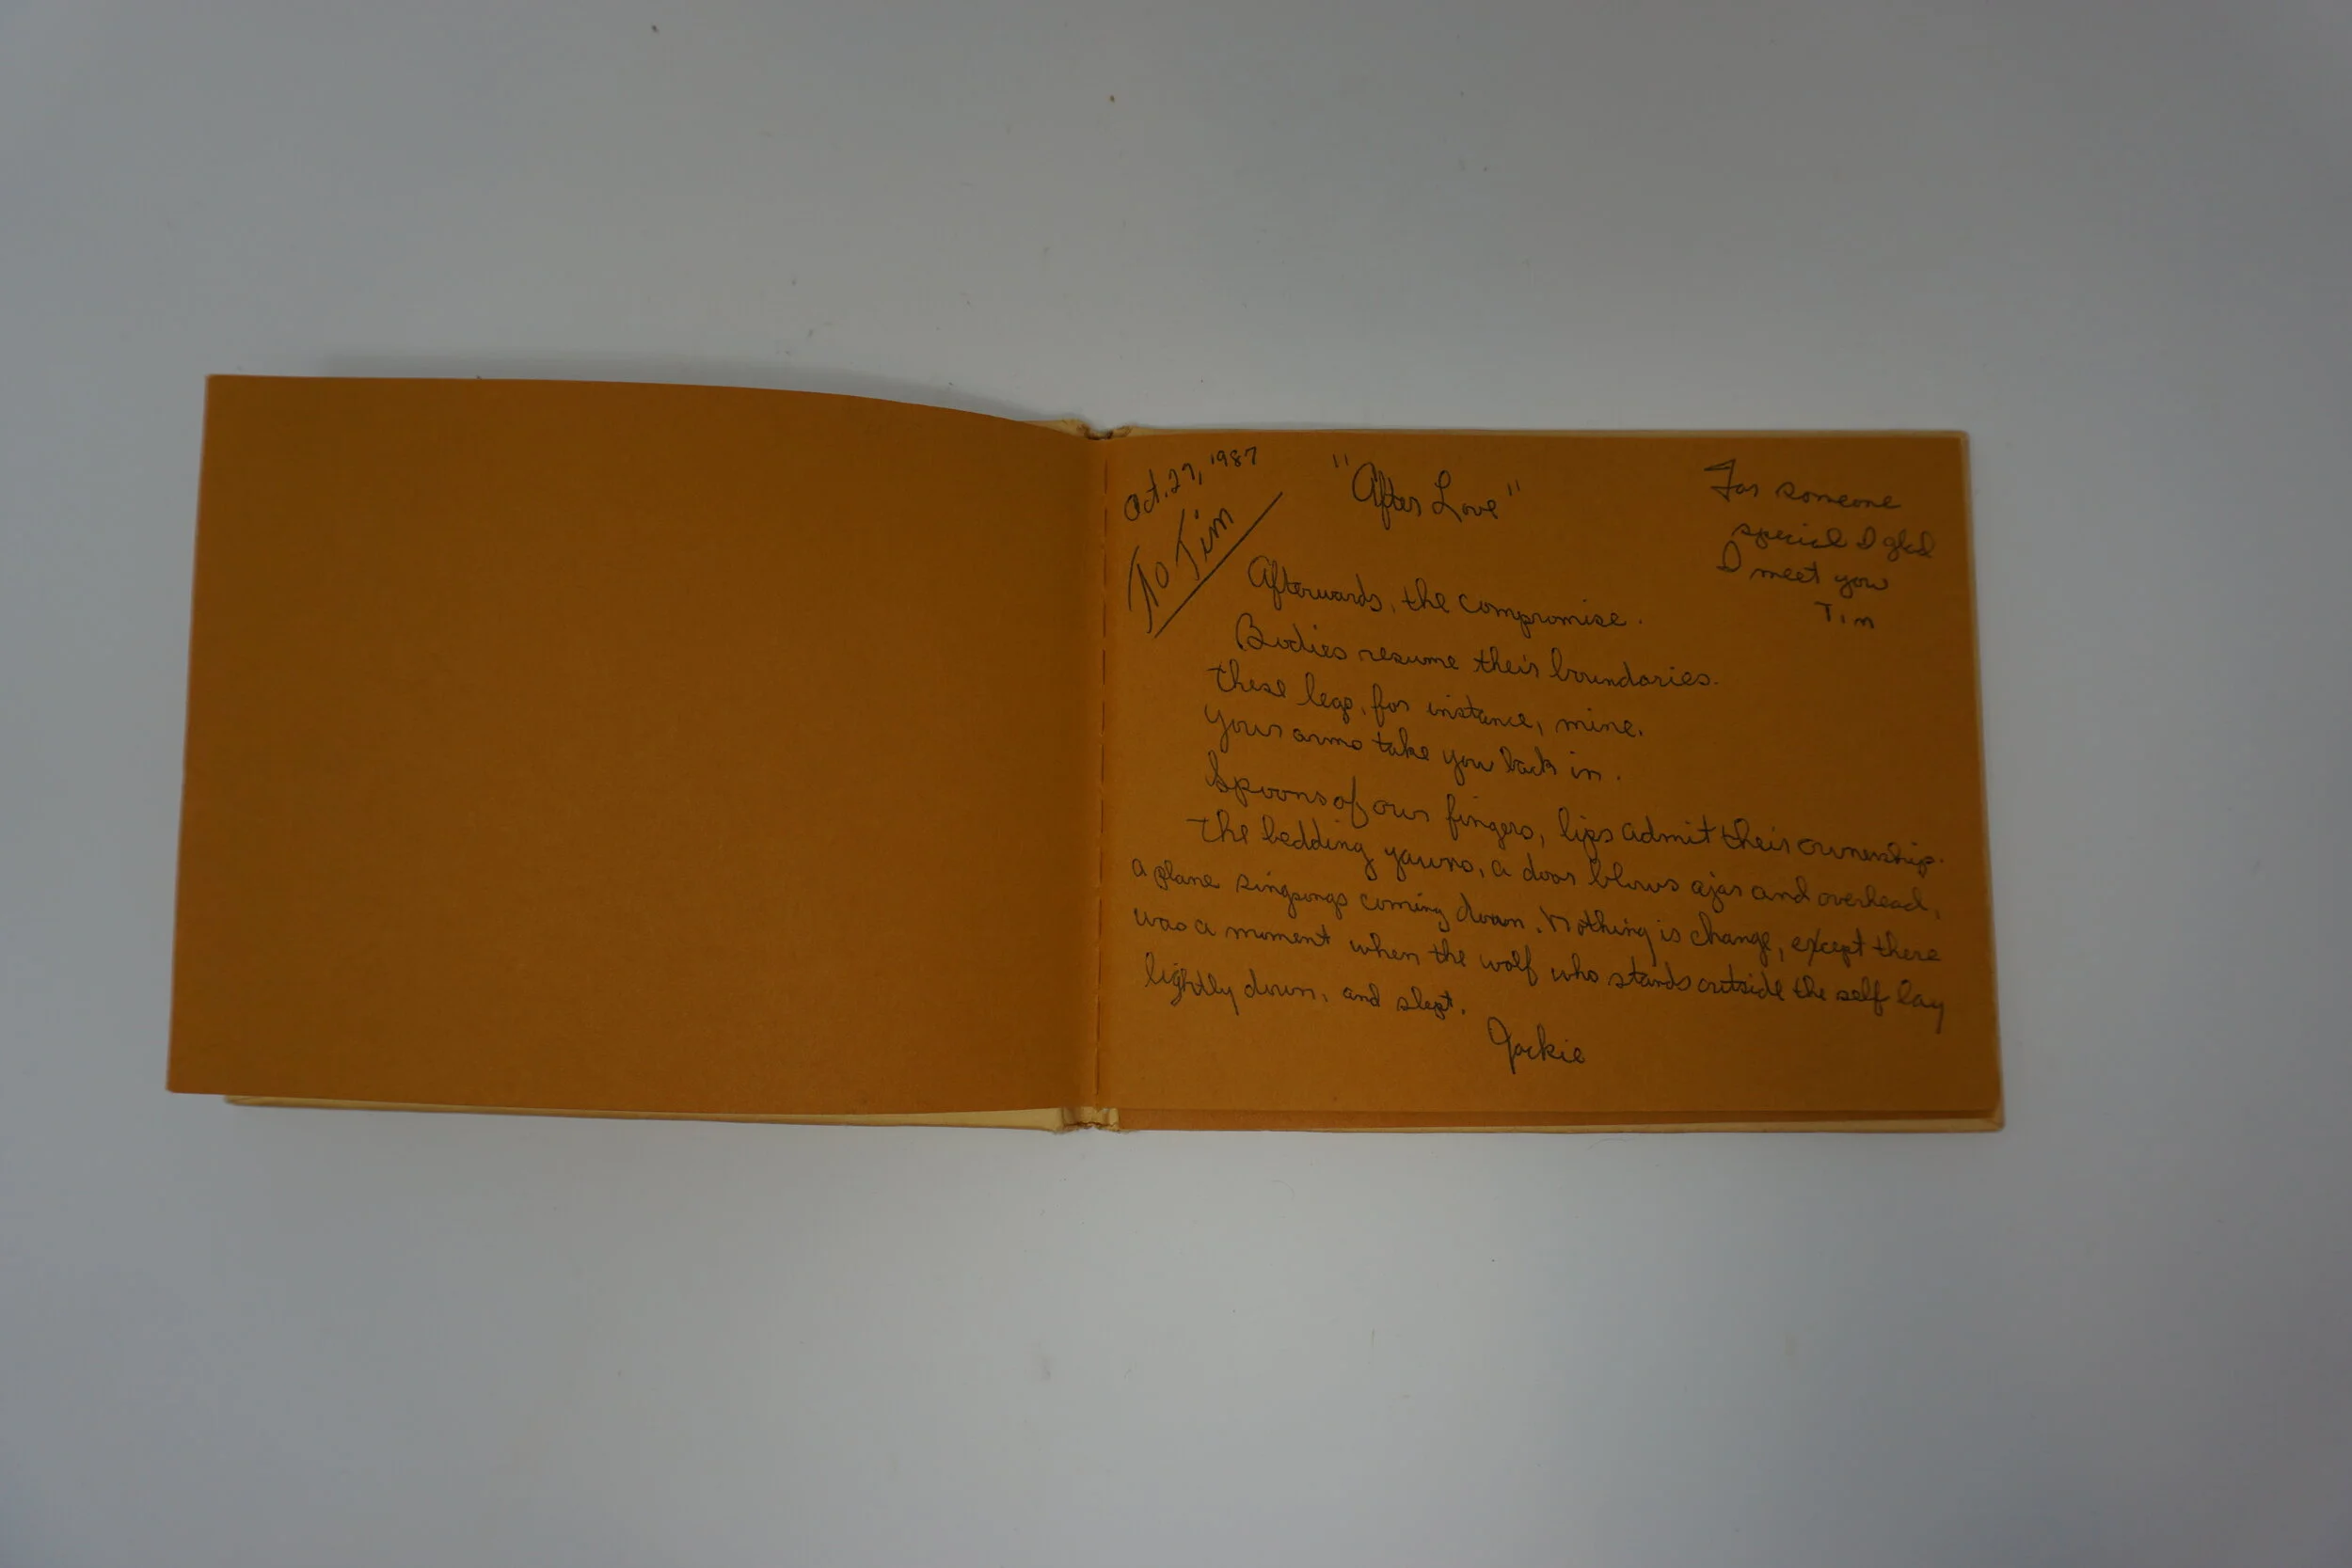 Oct. 27, 1987
To Tim
"After Love"
For someone
special I glad
I meet you
Tim
Afterwards, the compromise.
Bodies resume their boundaries.
these legs, for instance, mine.
your arms take you back in.
Spoons of our fingers, lips admit their ownership.
the bedding yawns, a door blows ajar and overhead,
a plane singsongs coming down. Nothing is change, except there
was a moment when the wolf who stands outside the self lay
lightly down, and slept.
Jackie